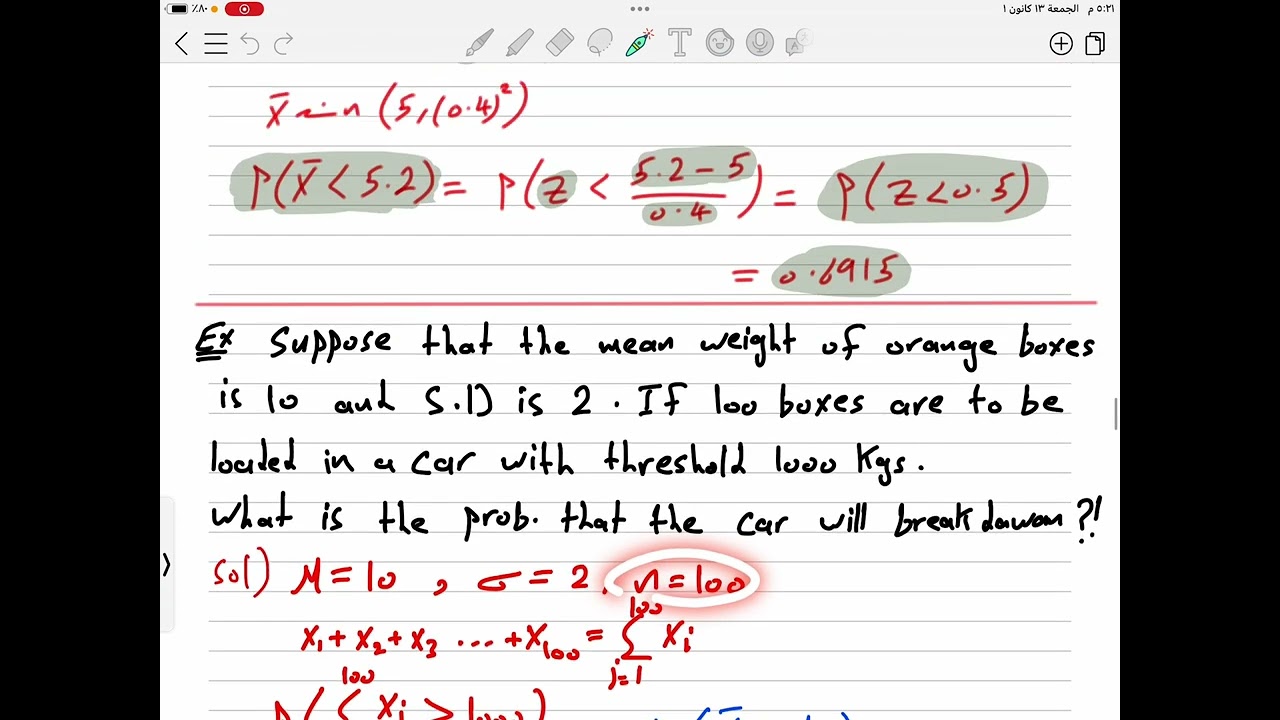 ٪٨٠ ٥:٢١ م الجمعة ١٣ كانون ١
x̄ ~ n (5,(0.4)²)
P(x̄ < 5.2) = P(Z < (5.2 - 5)/0.4) = P(Z < 0.5)
= 0.6915
Ex Suppose that the mean weight of orange boxes
is 10 and S.D is 2. If 100 boxes are to be
loaded in a car with threshold 1000 Kgs.
What is the prob. that the car will break dawon ?!
Sol) M = 10 , σ = 2, n = 100
x₁ + x₂ + x₃ ... + x₁₀₀ = Σ_{i=1}^{100} xᵢ
P(Σ^{100} xᵢ > 1000)